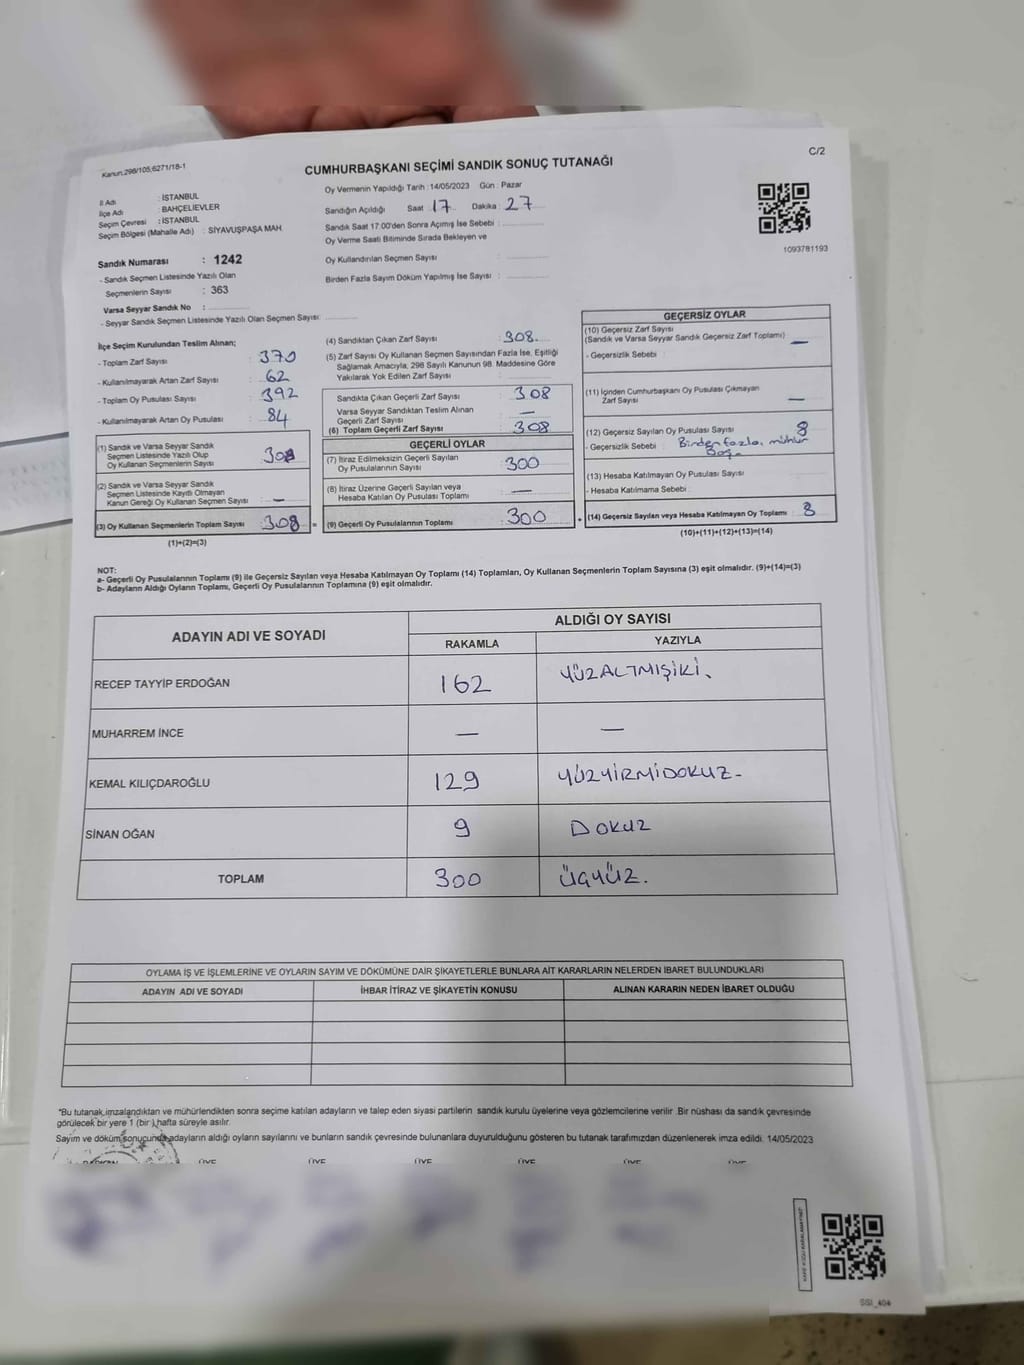 Kanun.298/105;6271/18-1
CUMHURBAŞKANI SEÇİMİ SANDIK SONUÇ TUTANAĞI
C/2
İl Adı : İSTANBUL
İlçe Adı : BAHÇELİEVLER
Seçim Çevresi : İSTANBUL
Seçim Bölgesi (Mahalle Adı) : SİYAVUŞPAŞA MAH.
Oy Vermenin Yapıldığı Tarih : 14/05/2023 Gün : Pazar
Sandığın Açıldığı Saat 17 Dakika : 27
Sandık Saat 17:00'den Sonra Açımış İse Sebebi :
Oy Verme Saati Bitiminde Sırada Bekleyen ve
Oy Kullandırılan Seçmen Sayısı :
Birden Fazla Sayım Döküm Yapılmış İse Sayısı :
1093781193
Sandık Numarası : 1242
- Sandık Seçmen Listesinde Yazılı Olan
Seçmenlerin Sayısı : 363
Varsa Seyyar Sandık No :
- Seyyar Sandık Seçmen Listesinde Yazılı Olan Seçmen Sayısı:
İlçe Seçim Kurulundan Teslim Alınan;
- Toplam Zarf Sayısı : 370
- Kullanılmayarak Artan Zarf Sayısı : 62
- Toplam Oy Pusulası Sayısı : 392
- Kullanılmayarak Artan Oy Pusulası : 84
(1) Sandık ve Varsa Seyyar Sandık
Seçmen Listesinde Yazılı Olup
Oy Kullanan Seçmenlerin Sayısı : 308
(2) Sandık ve Varsa Seyyar Sandık
Seçmen Listesinde Kayıtlı Olmayan
Kanun Gereği Oy Kullanan Seçmen Sayısı : —
(3) Oy Kullanan Seçmenlerin Toplam Sayısı : 308 =
(1)+(2)=(3)
(4) Sandıktan Çıkan Zarf Sayısı : 308.
(5) Zarf Sayısı Oy Kullanan Seçmen Sayısından Fazla İse, Eşitliği
Sağlamak Amacıyla, 298 Sayılı Kanunun 98. Maddesine Göre
Yakılarak Yok Edilen Zarf Sayısı :
Sandıkta Çıkan Geçerli Zarf Sayısı : 308
Varsa Seyyar Sandıktan Teslim Alınan
Geçerli Zarf Sayısı : —
(6) Toplam Geçerli Zarf Sayısı : 308
GEÇERLİ OYLAR
(7) İtiraz Edilmeksizin Geçerli Sayılan
Oy Pusulalarının Sayısı : 300
(8) İtiraz Üzerine Geçerli Sayılan veya
Hesaba Katılan Oy Pusulası Toplamı : —
(9) Geçerli Oy Pusulalarının Toplamı : 300 +
GEÇERSİZ OYLAR
(10) Geçersiz Zarf Sayısı
(Sandık ve Varsa Seyyar Sandık Geçersiz Zarf Toplamı) : —
- Geçersizlik Sebebi :
(11) İçinden Cumhurbaşkanı Oy Pusulası Çıkmayan
Zarf Sayısı : —
(12) Geçersiz Sayılan Oy Pusulası Sayısı : 8
- Geçersizlik Sebebi : Birden fazla, mühür
Boş.
(13) Hesaba Katılmayan Oy Pusulası Sayısı :
- Hesaba Katılmama Sebebi :
(14) Geçersiz Sayılan veya Hesaba Katılmayan Oy Toplamı : 8
(10)+(11)+(12)+(13)=(14)
NOT:
a- Geçerli Oy Pusulalarının Toplamı (9) ile Geçersiz Sayılan veya Hesaba Katılmayan Oy Toplamı (14) Toplamları, Oy Kullanan Seçmenlerin Toplam Sayısına (3) eşit olmalıdır. (9)+(14)=(3)
b- Adayların Aldığı Oyların Toplamı, Geçerli Oy Pusulalarının Toplamına (9) eşit olmalıdır.
ADAYIN ADI VE SOYADI
ALDIĞI OY SAYISI
RAKAMLA YAZIYLA
RECEP TAYYİP ERDOĞAN 162 YÜZALTMIŞİKİ.
MUHARREM İNCE — —
KEMAL KILIÇDAROĞLU 129 YÜZYİRMİDOKUZ-
SİNAN OĞAN 9 DOKUZ
TOPLAM 300 ÜÇYÜZ.
OYLAMA İŞ VE İŞLEMLERİNE VE OYLARIN SAYIM VE DÖKÜMÜNE DAİR ŞİKAYETLERLE BUNLARA AİT KARARLARIN NELERDEN İBARET BULUNDUKLARI
ADAYIN ADI VE SOYADI İHBAR İTİRAZ VE ŞİKAYETİN KONUSU ALINAN KARARIN NEDEN İBARET OLDUĞU
*Bu tutanak,imzalandıktan ve mühürlendikten sonra seçime katılan adayların ve talep eden siyasi partilerin sandık kurulu üyelerine veya gözlemcilerine verilir .Bir nüshası da sandık çevresinde
görülecek bir yere 1 (bir ) hafta süreyle asılır.
Sayım ve döküm sonucunda adayların aldığı oyların sayılarını ve bunların sandık çevresinde bulunanlara duyurulduğunu gösteren bu tutanak tarafımızdan düzenlenerek imza edildi. 14/05/2023
ÜYE ÜYE ÜYE ÜYE ÜYE ÜYE
SSI_404